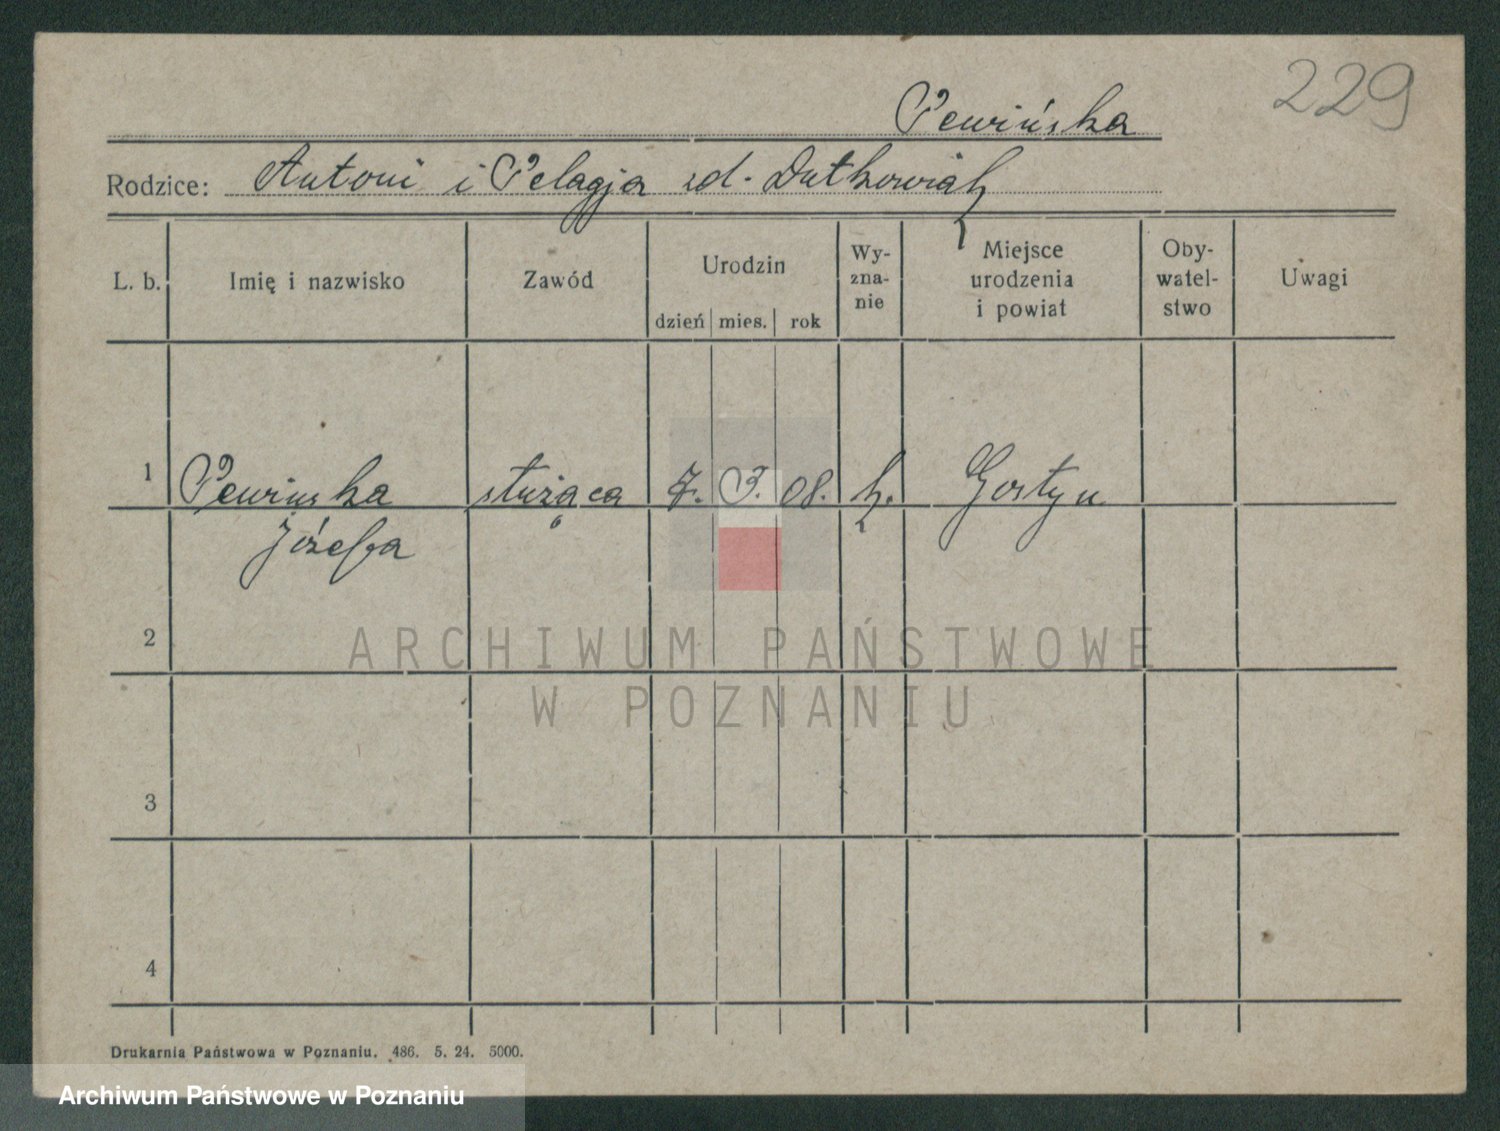 229
Pewińska
Rodzice: Antoni i Pelagja zd. Dutkowiak
L. b. Imię i nazwisko Zawód Urodzin dzień mies. rok Wy-zna-nie Miejsce urodzenia i powiat Oby-watel-stwo Uwagi
1 Pewinska służąca 7. 3. 08. k. Gostyn
Józefa
2
ARCHIWUM PAŃSTWOWE
W POZNANIU
3
4
Drukarnia Państwowa w Poznaniu. 486. 5. 24. 5000.
Archiwum Państwowe w Poznaniu